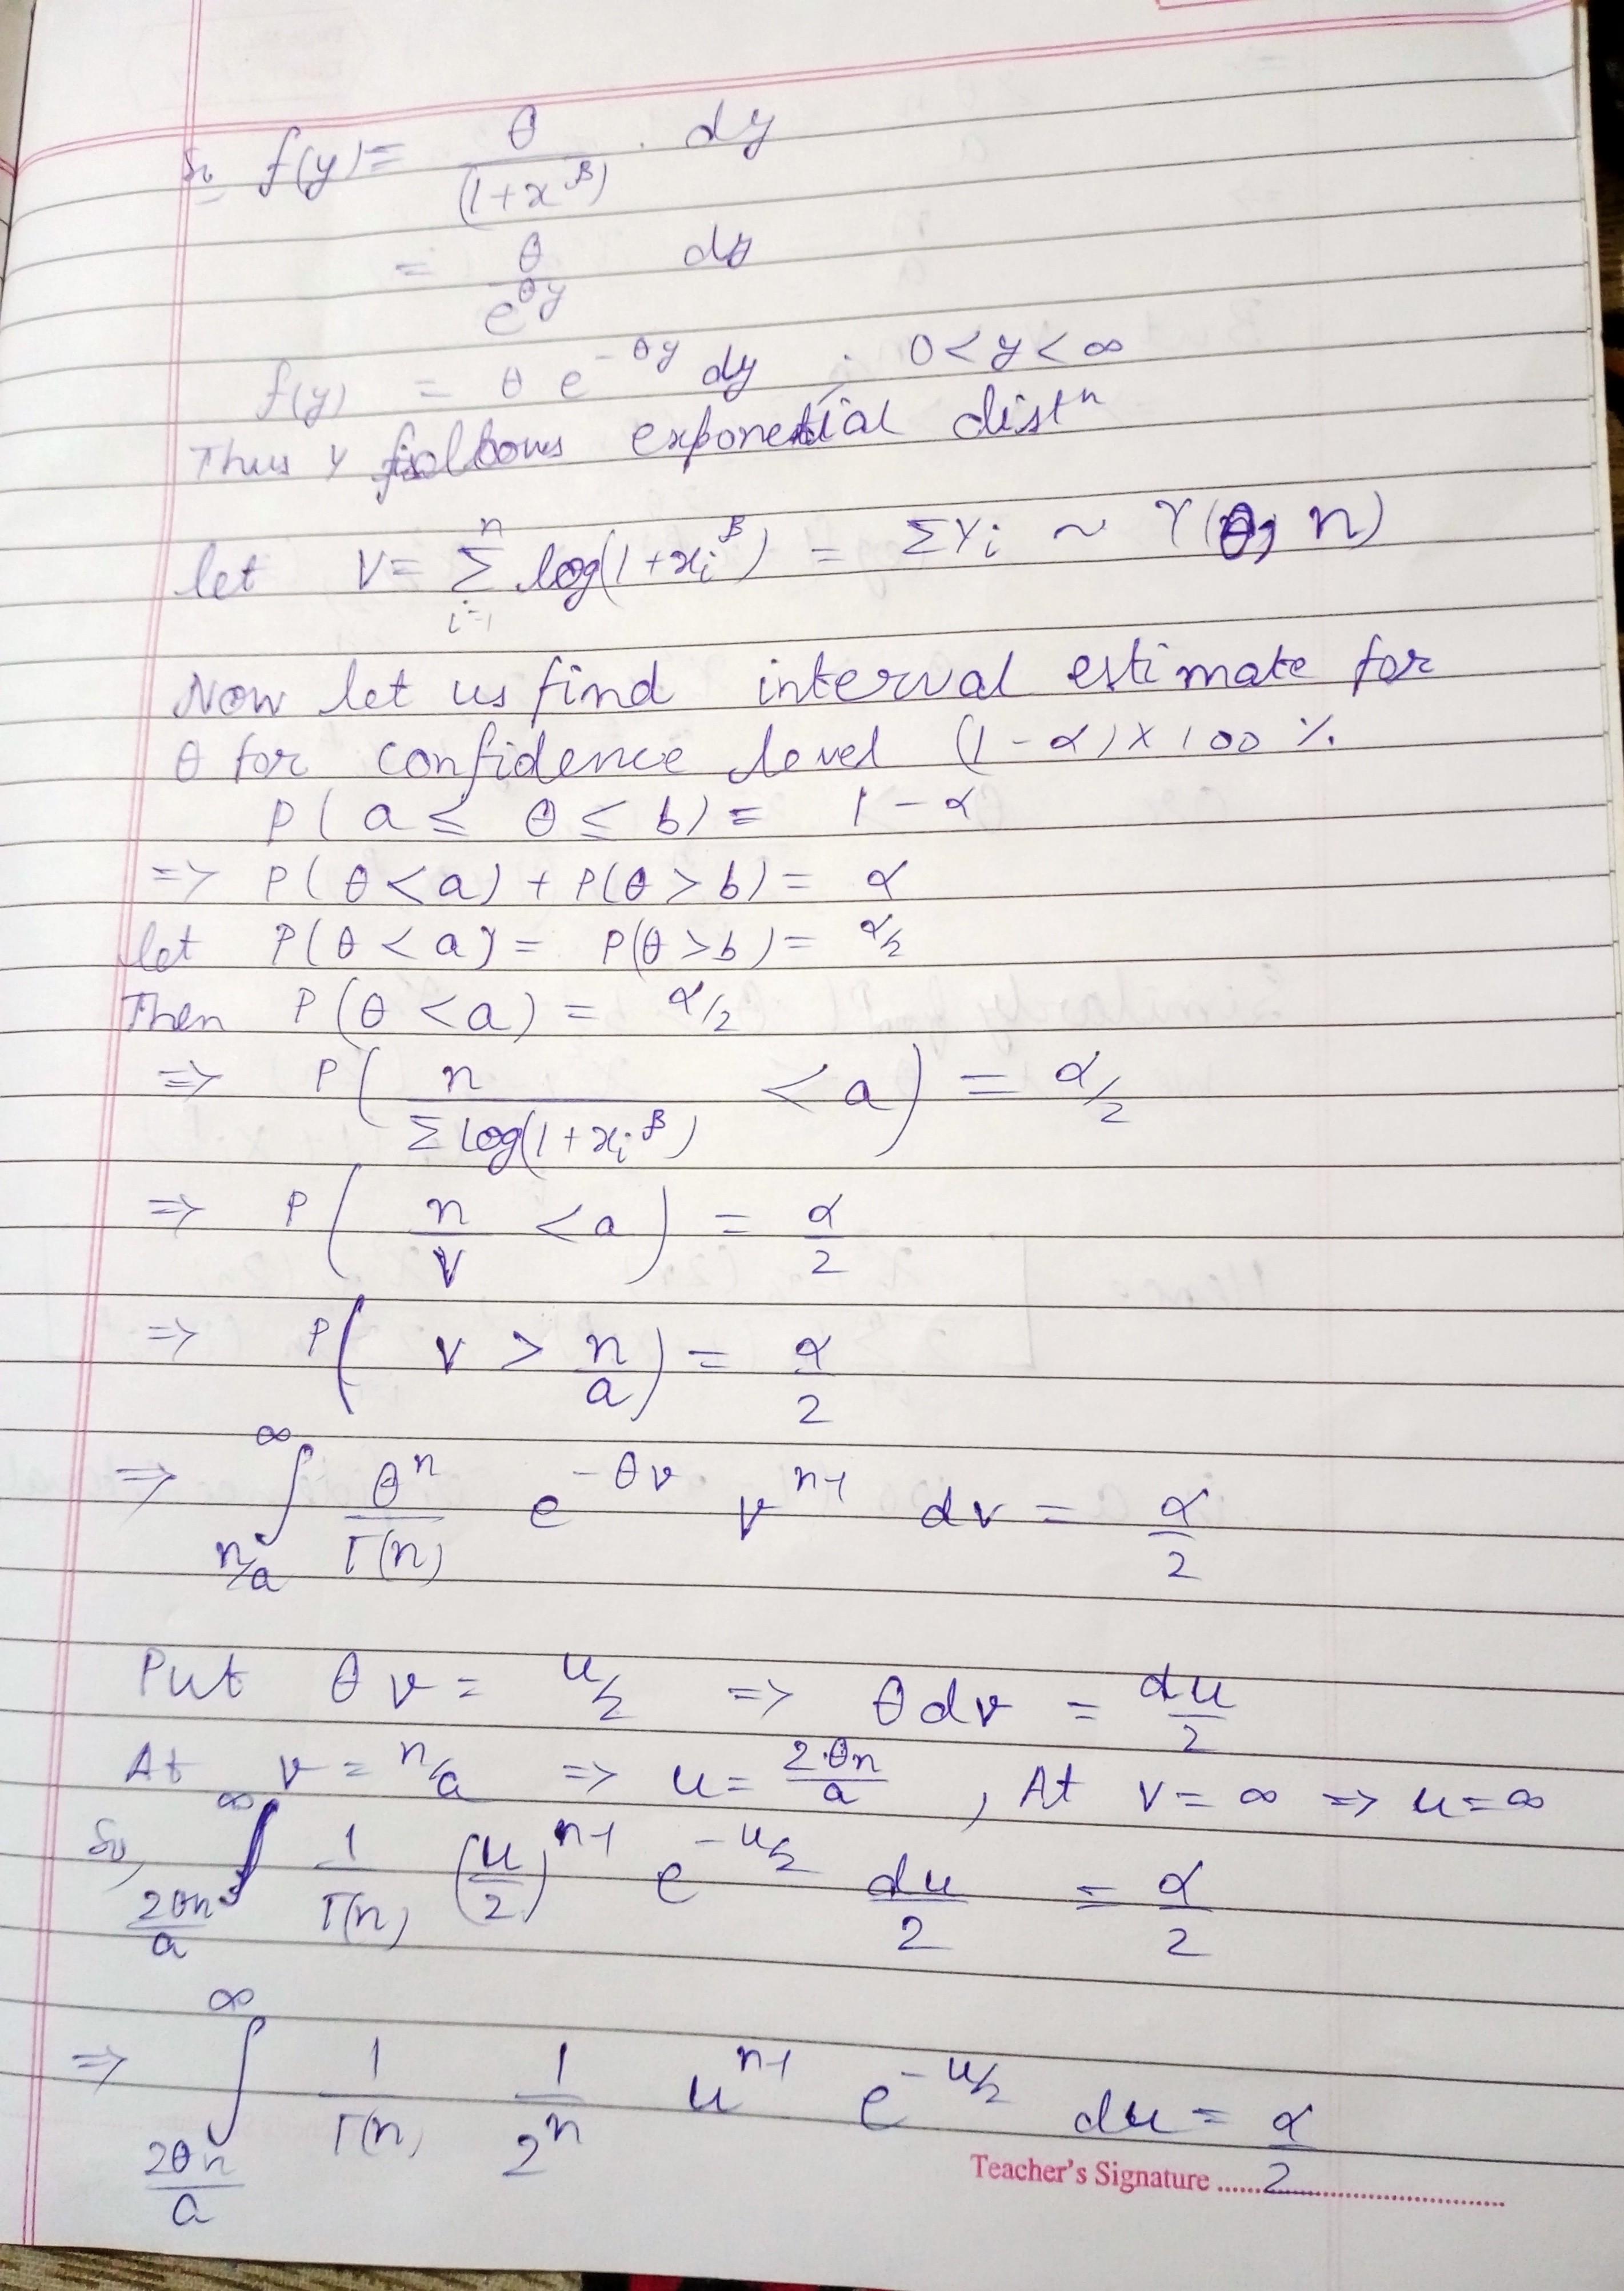 So f(y) = θ/(1+x^β) . dy
= θ/e^θy dy
f(y) = θ e^-θy dy ; 0<y<∞
Thus Y follows exponential distⁿ
let V = Σ_{i=1}^{n} log(1+x_i^β) = ΣY_i ~ γ(θ, n)
Now let us find interval estimate for
θ for confidence level (1-α)×100 %
P(a ≤ θ ≤ b) = 1-α
=> P(θ<a) + P(θ>b) = α
let P(θ<a) = P(θ>b) = α/2
Then P(θ<a) = α/2
=> P( n/Σlog(1+x_i^β) < a ) = α/2
=> P( n/V < a ) = α/2
=> P( v > n/a ) = α/2
=> ∫_{n/a}^{∞} θ^n/Γ(n) e^-θv v^n-1 dv = α/2
Put θv = u/2 => θdv = du/2
At v = n/a => u = 2.θn/a , At v = ∞ => u = ∞
So, ∫_{2θn/a}^{∞} 1/Γ(n) (u/2)^n-1 e^-u/2 du/2 = α/2
=> ∫_{2θn/a}^{∞} 1/Γ(n) 1/2^n u^n-1 e^-u/2 du = α/2
Teacher's Signature